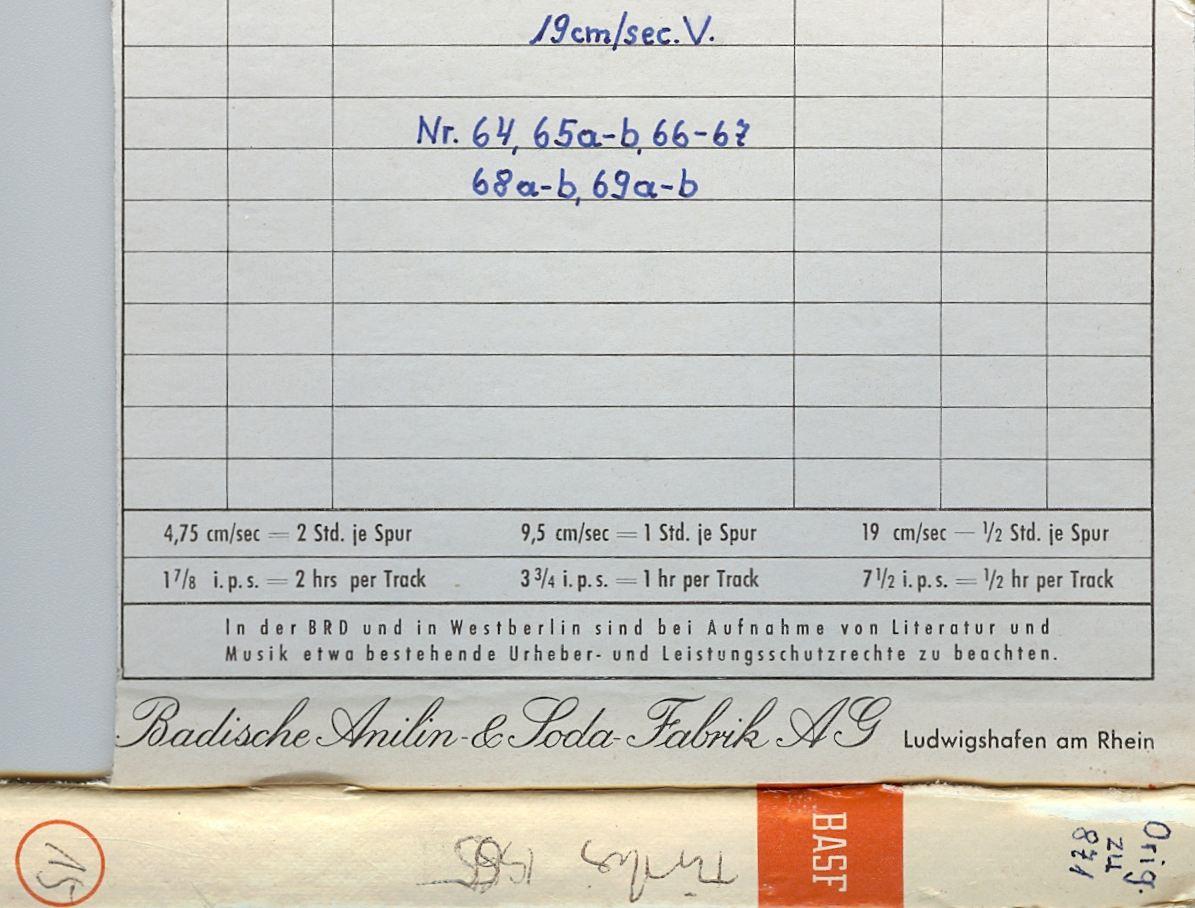 19cm/sec. V.
Nr. 64, 65a-b, 66-67
68a-b, 69a-b
4,75 cm/sec = 2 Std. je Spur 9,5 cm/sec = 1 Std. je Spur 19 cm/sec — 1/2 Std. je Spur
1 7/8 i.p.s. = 2 hrs per Track 3 3/4 i.p.s. = 1 hr per Track 7 1/2 i.p.s. = 1/2 hr per Track
In der BRD und in Westberlin sind bei Aufnahme von Literatur und
Musik etwa bestehende Urheber- und Leistungsschutzrechte zu beachten.
Badische Anilin- & Soda-Fabrik AG Ludwigshafen am Rhein
15
BASF
Orig.
zu
871